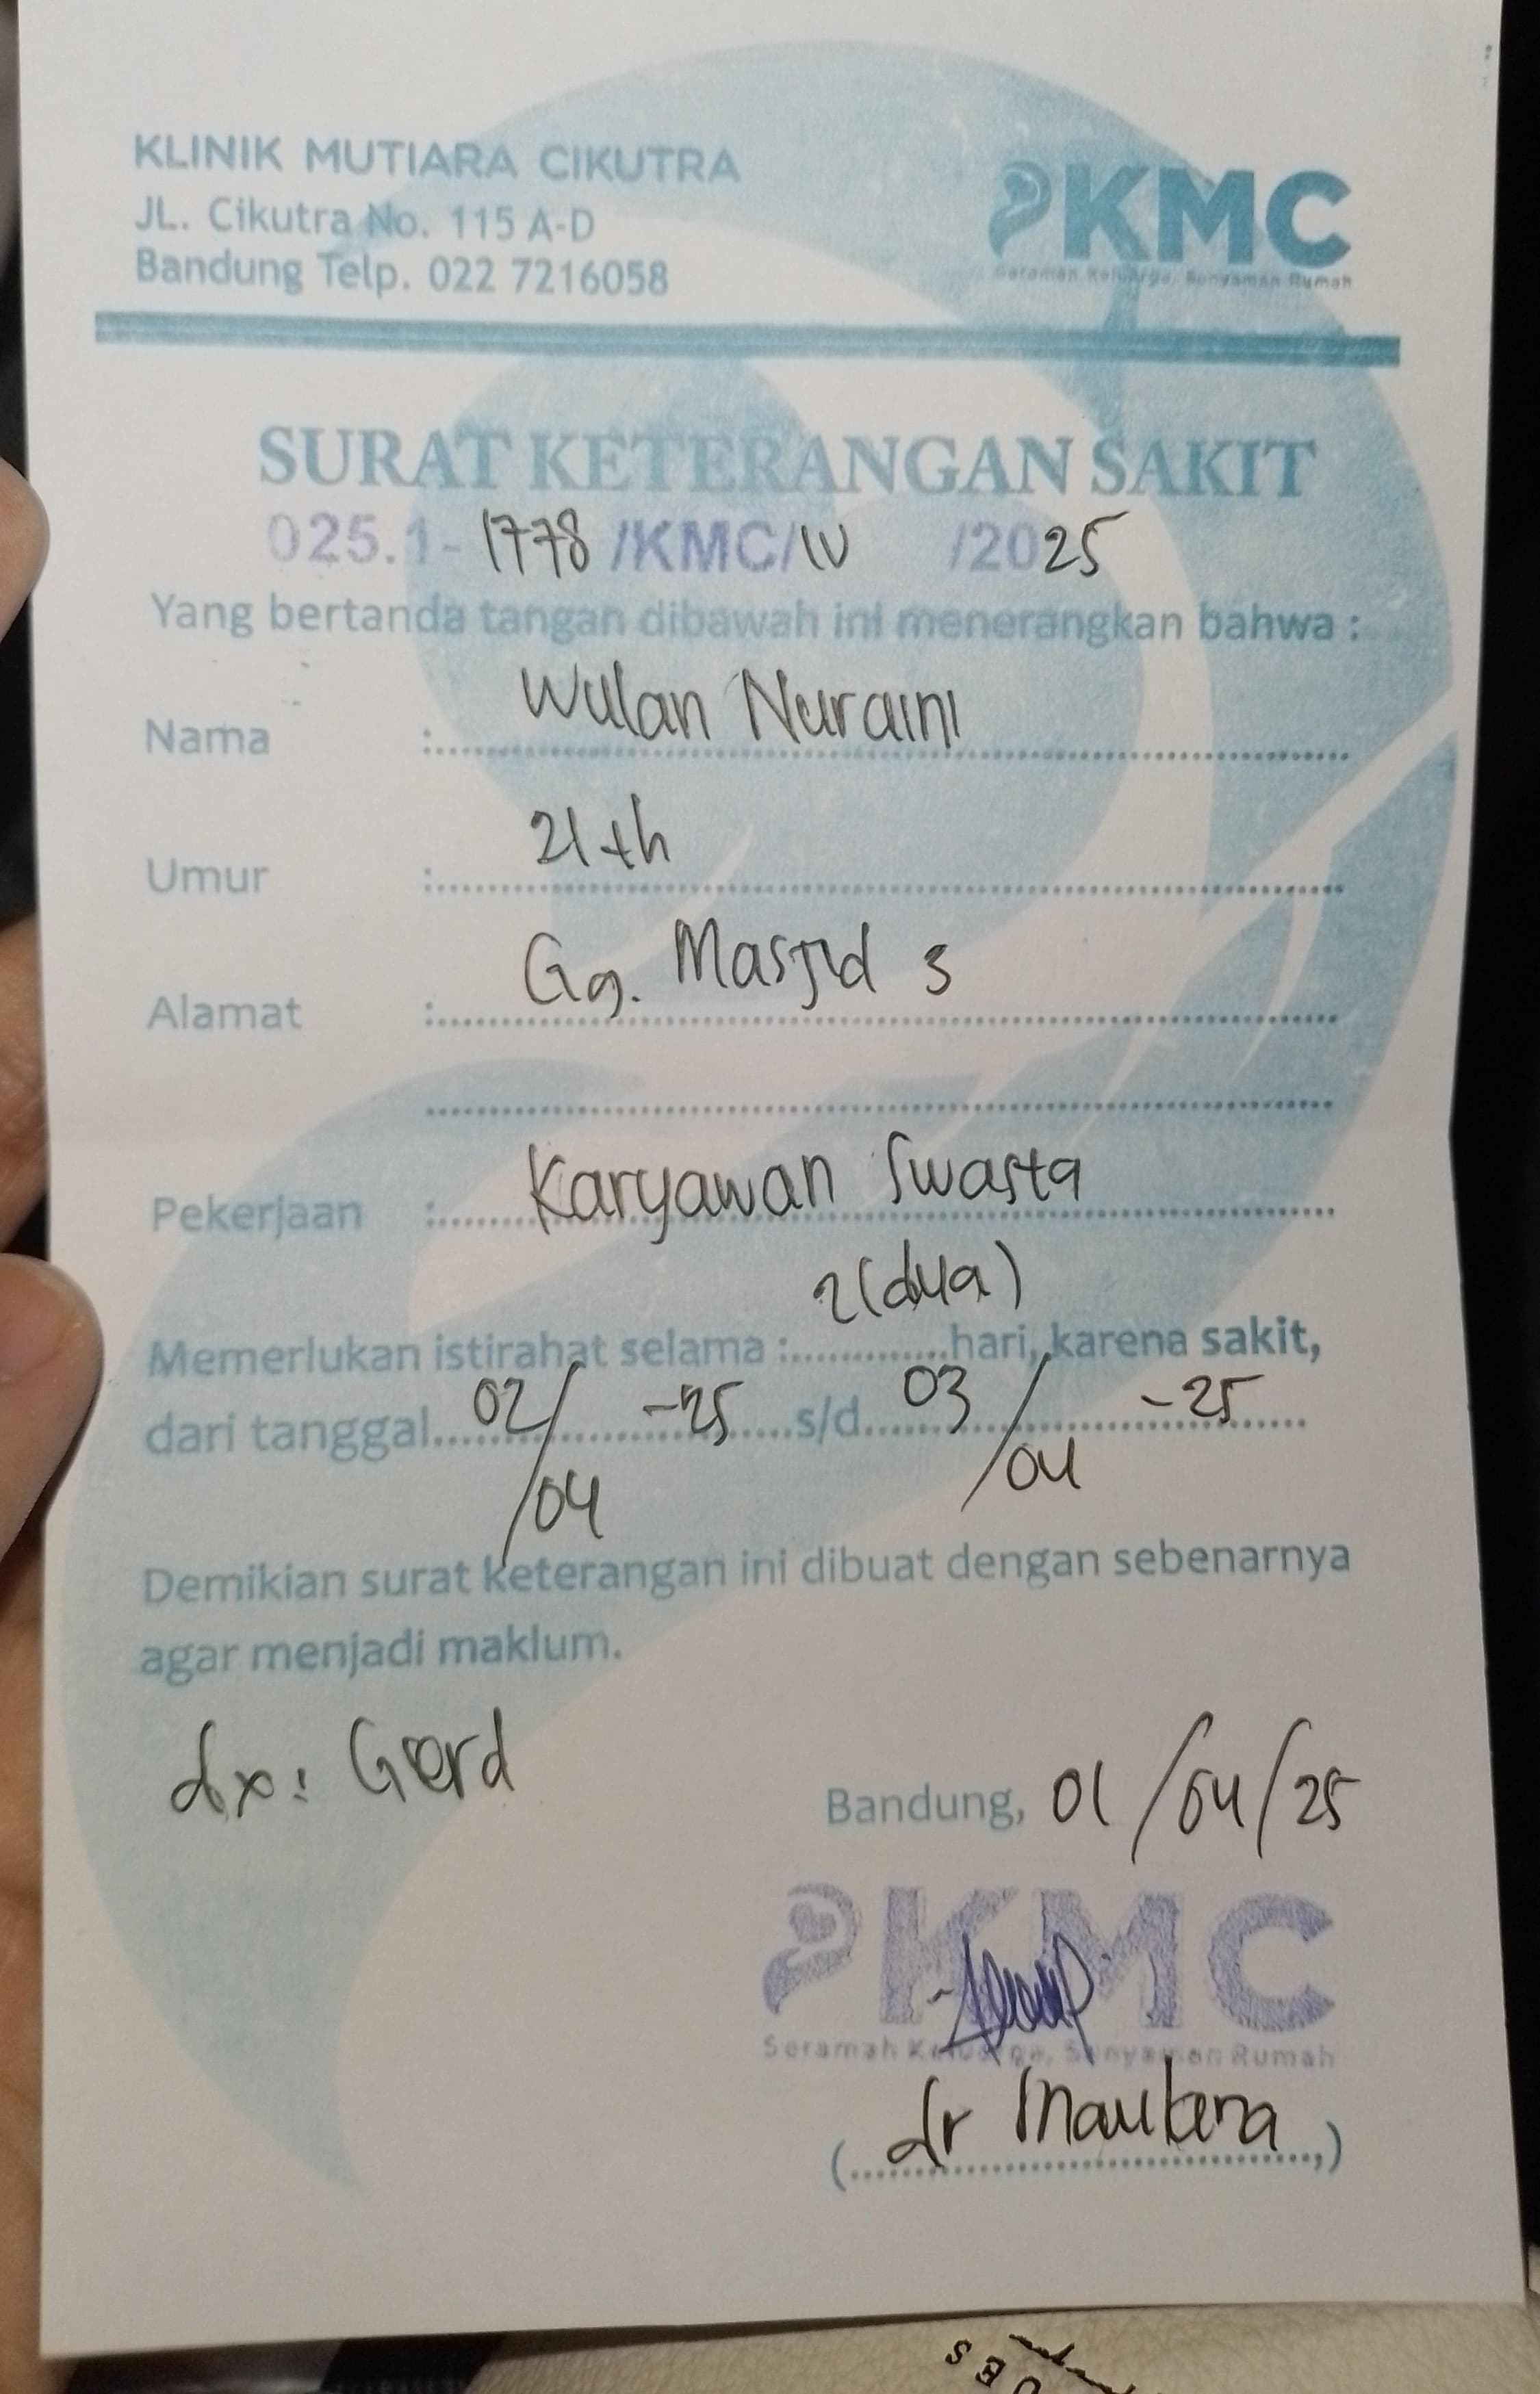 KLINIK MUTIARA CIKUTRA
JL. Cikutra No. 115 A-D
Bandung Telp. 022 7216058
KMC
Seramah Keluarga, Senyaman Rumah
SURAT KETERANGAN SAKIT
025.1- 1778 /KMC/IV /2025
Yang bertanda tangan dibawah ini menerangkan bahwa :
Nama : Wulan Nuraini
Umur : 21 th
Alamat : Gg. Masjid 3
Pekerjaan : Karyawan Swasta
Memerlukan istirahat selama : 2 (dua) hari, karena sakit,
dari tanggal 02/04 -25 s/d 03/04 -25
Demikian surat keterangan ini dibuat dengan sebenarnya
agar menjadi maklum.
dx: Gerd
Bandung, 01/04/25
KMC
Seramah Keluarga, Senyaman Rumah
(dr )